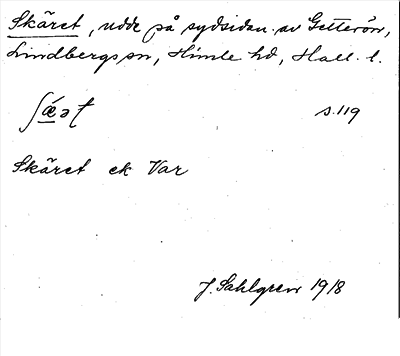 Skäret, udde på sydsidan av Getterön,
Lindbergs sn, Himle hd, Hall. l.
s. 119
Skäret ek Var
J. Sahlgren 1918